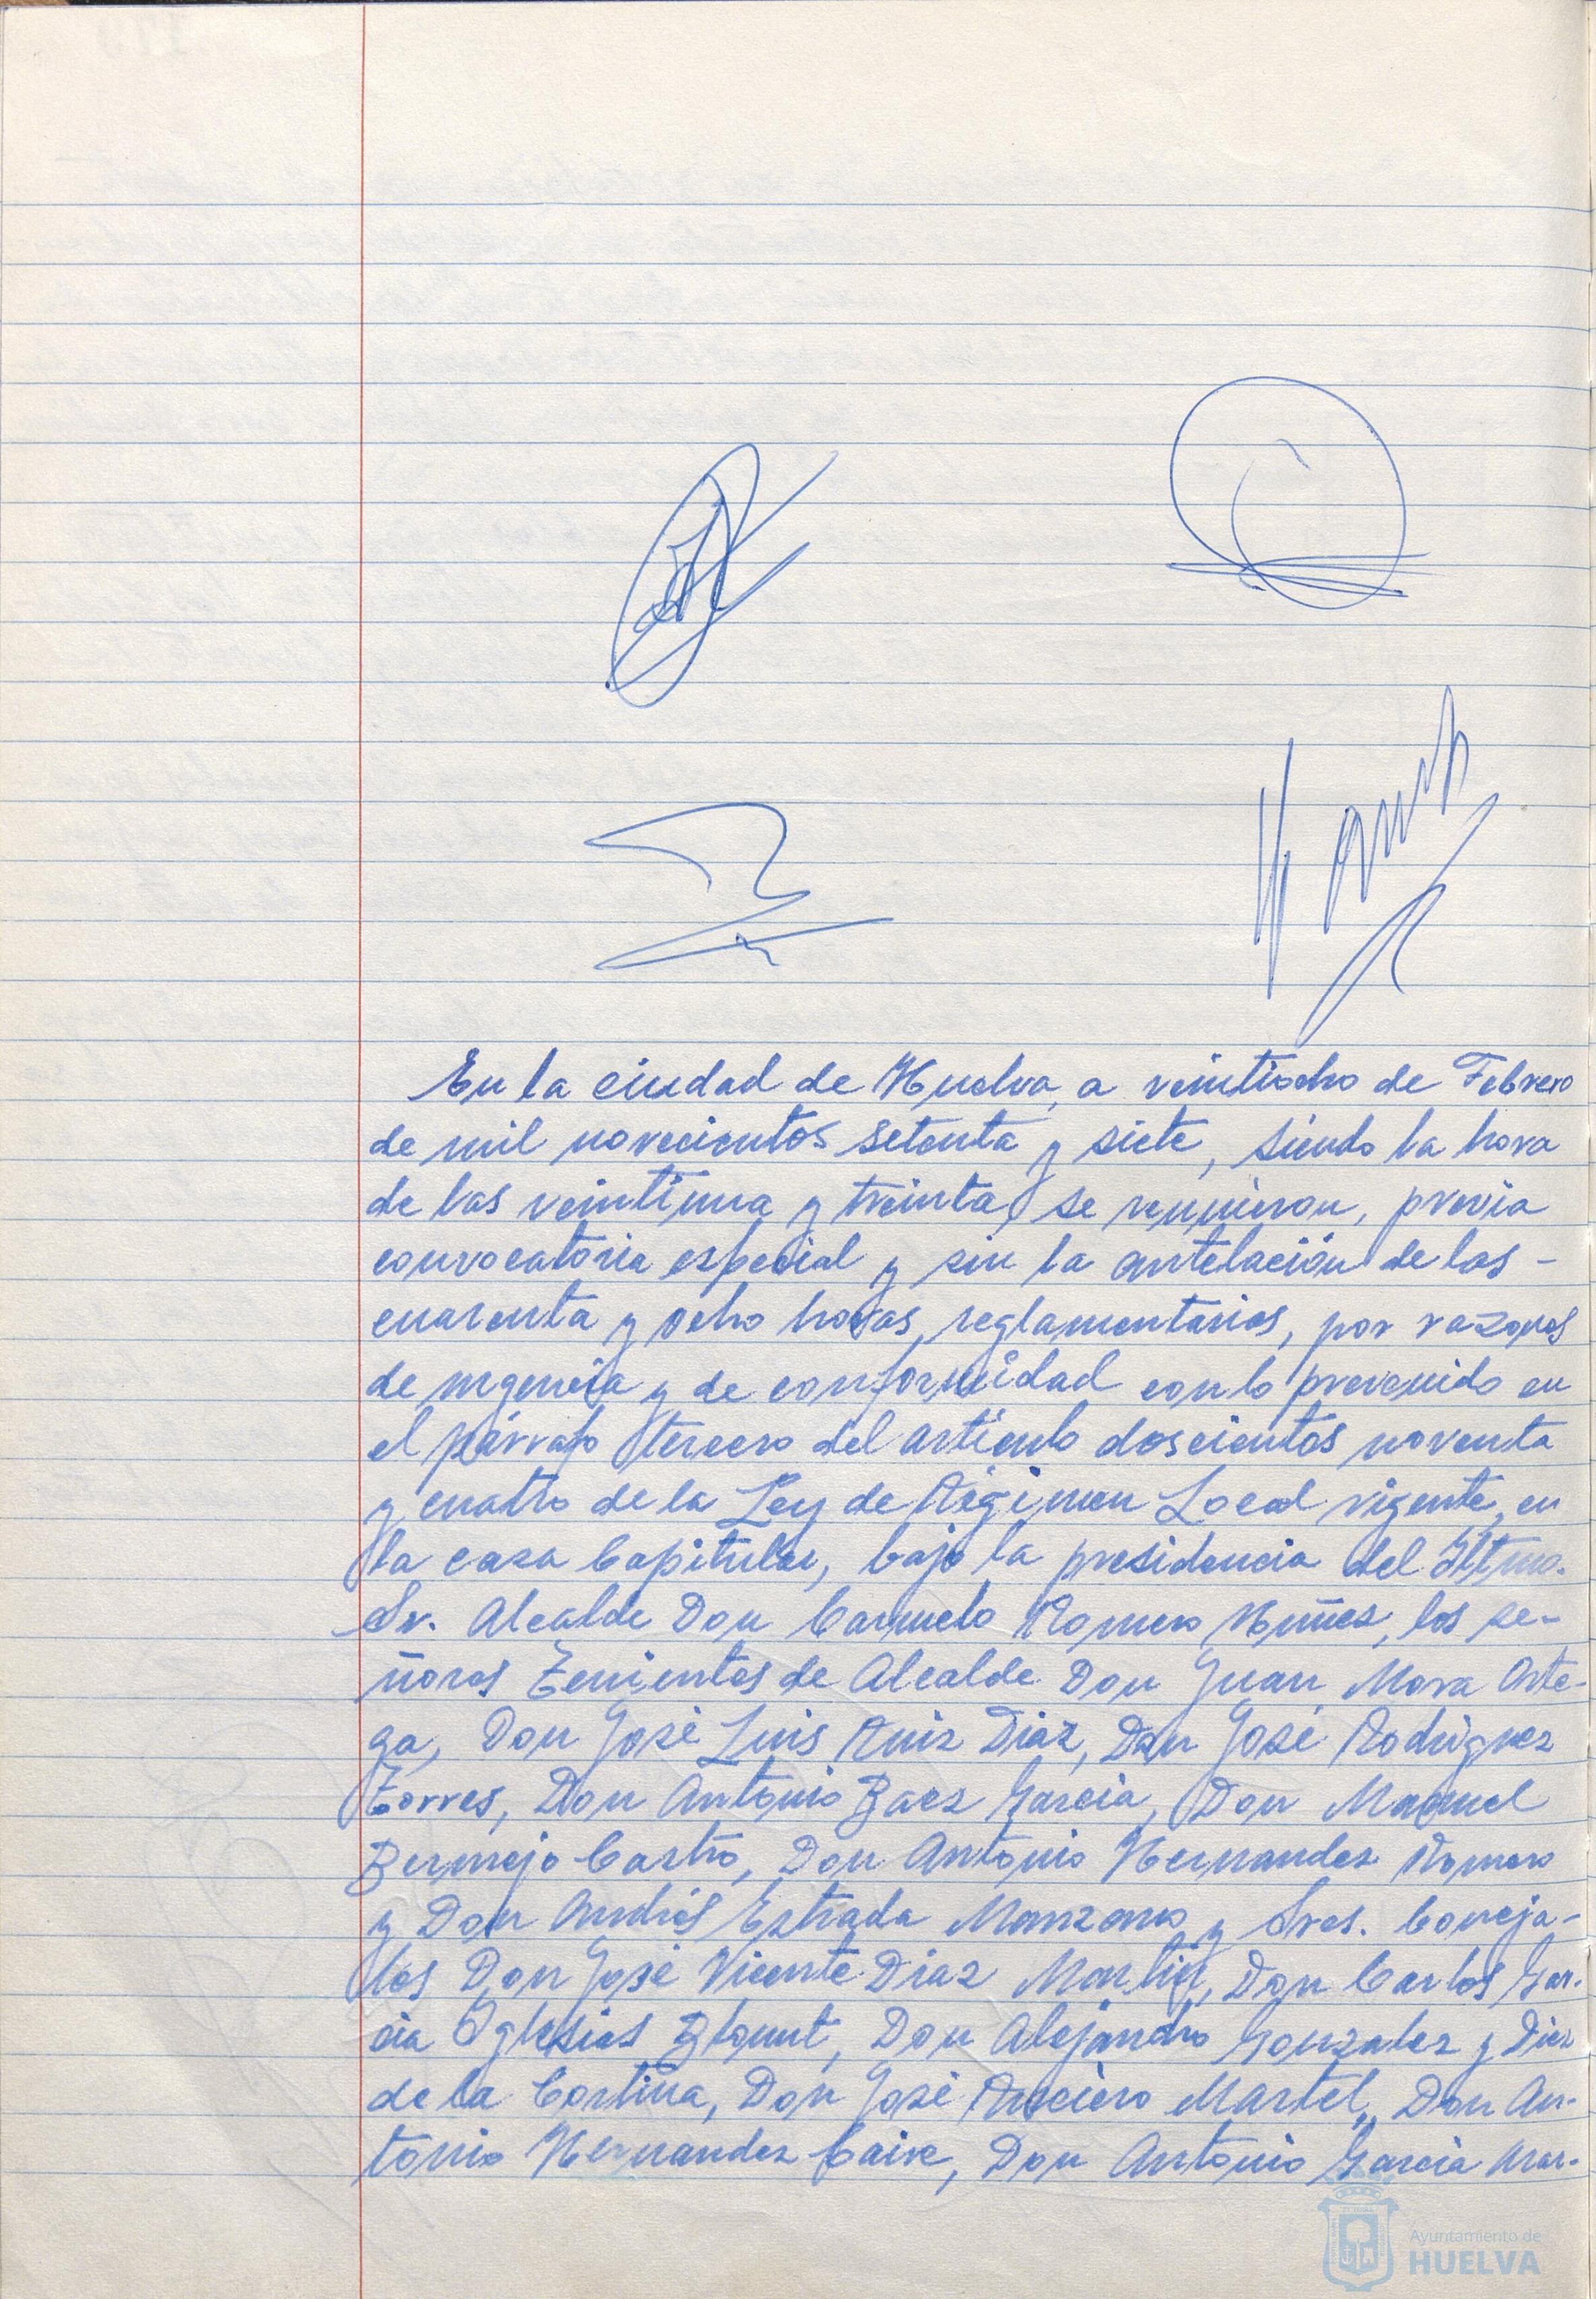 En la ciudad de Huelva, a veintiocho de Febrero
de mil novecientos setenta y siete, siendo la hora
de las veintiuna y treinta, se reunieron, previa
convocatoria especial y sin la antelación de las -
cuarenta y ocho horas, reglamentarias, por razones
de urgencia y de conformidad con lo prevenido en
el párrafo tercero del artículo doscientos noventa
y cuatro de la Ley de Régimen Local vigente, en
la casa Capitular, bajo la presidencia del Iltmo.
Sr. Alcalde Don Carmelo Romero Núñez, los se-
ñores Tenientes de Alcalde Don Juan Mora Orte-
ga, Don José Luis Ruiz Diaz, Don José Rodriguez
Torres, Don Antonio Baez Garcia, Don Manuel
Bermejo Castro, Don Antonio Hernandez Romero
y Don Andrés Estrada Manzano y Sres. Conceja-
les Don José Vicente Diaz Martin, Don Carlos Gar-
cia Iglesias Blount, Don Alejandro Gonzalez y Diez
de la Cortina, Don José Martel, Don An-
tonio Hernandez Caire, Don Antonio Garcia Mar-
Ayuntamiento de
HUELVA